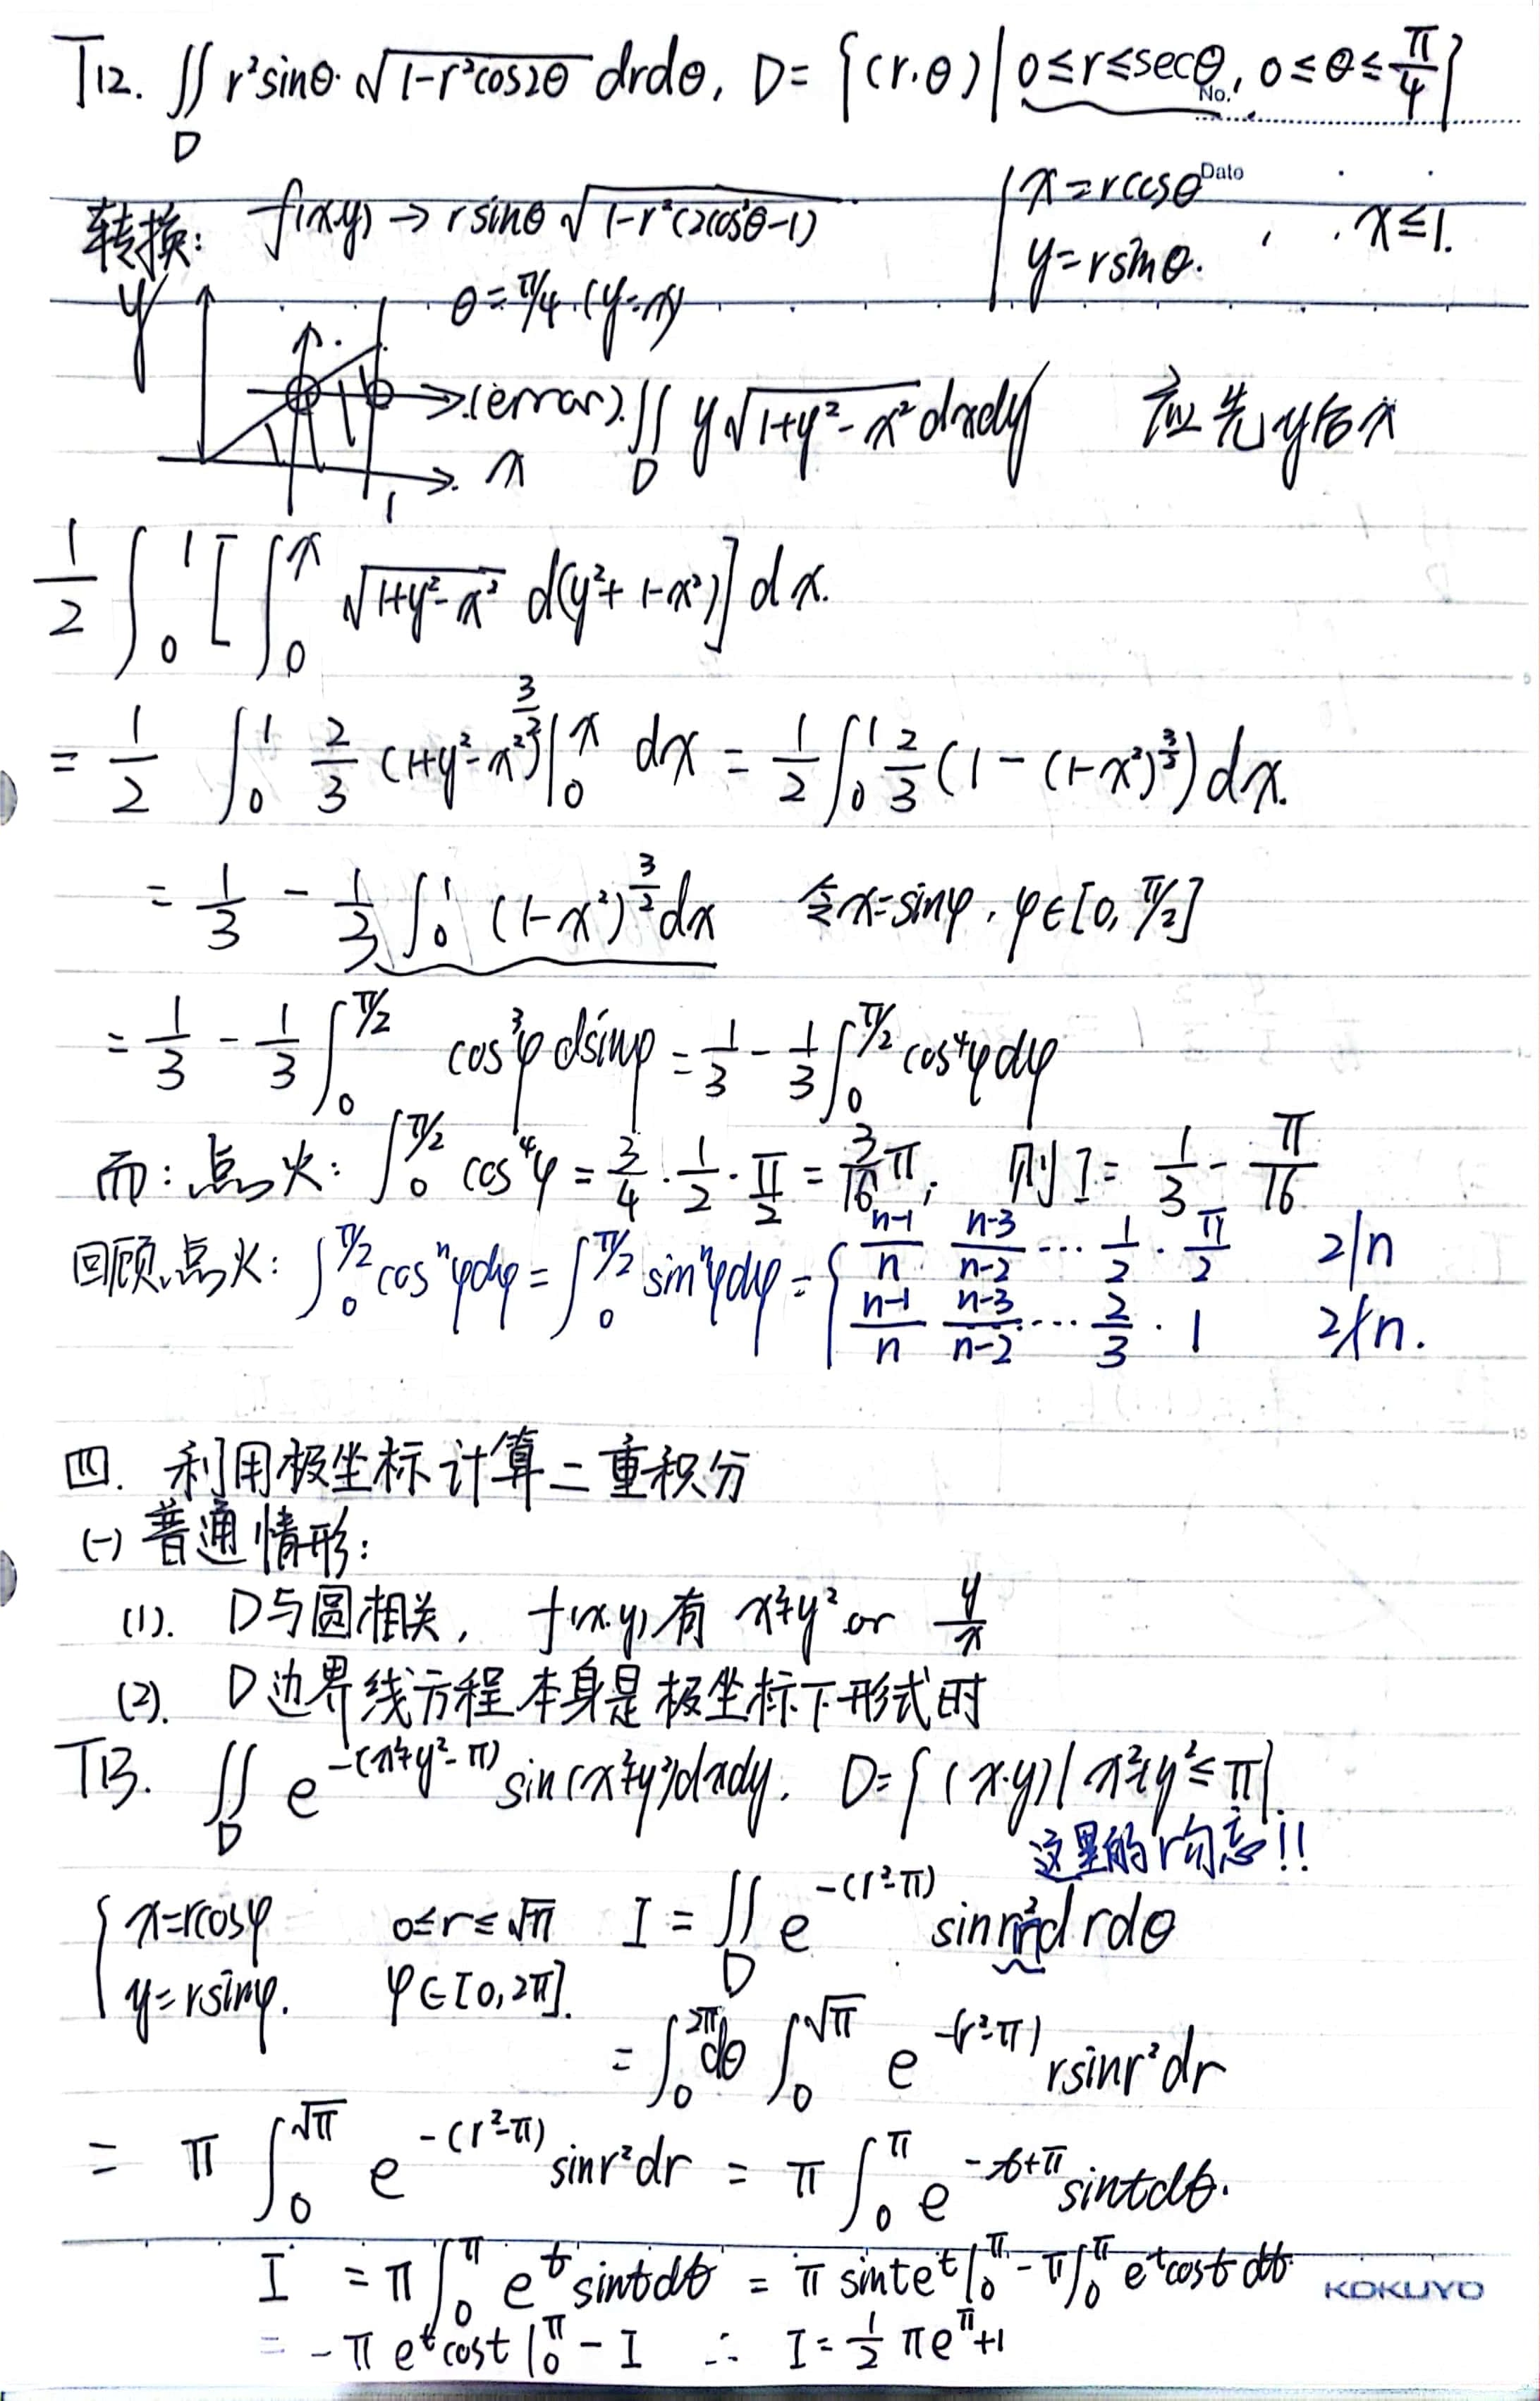 T12. ∬_D r²sinθ·√(1-r²cos2θ) drdθ, D={(r.θ)|0≤r≤secθ, 0≤θ≤π/4}
No.
Date
转换: f(x.y)→rsinθ√(1-r²(2cos²θ-1)) {x=rcosθ y=rsinθ. , x≤1.
y θ=π/4.(y=x)
→.(error).∬_D y√(1+y²-x²) dxdy 应先y后x
x
1
1/2 ∫_0^1 [∫_0^x √(1+y²-x²) d(y²+1-x²)] dx.
= 1/2 ∫_0^1 2/3 (1+y²-x²)^(3/2)|_0^x dx = 1/2 ∫_0^1 2/3 (1-(1-x²)^(3/2)) dx.
= 1/3 - 1/3 ∫_0^1 (1-x²)^(3/2) dx 令x=sinφ, φ∈[0,π/2]
= 1/3 - 1/3 ∫_0^(π/2) cos³φ dsinφ = 1/3 - 1/3 ∫_0^(π/2) cos⁴φdφ
而:点火: ∫_0^(π/2) cos⁴φ = 3/4·1/2·π/2 = 3/16 π; 则I= 1/3 - π/16
回顾点火: ∫_0^(π/2) cosⁿφdφ = ∫_0^(π/2) sinⁿφdφ = { (n-1)/n (n-3)/(n-2) ··· 1/2 · π/2 2|n
(n-1)/n (n-3)/(n-2) ··· 2/3 · 1 2∤n.
四. 利用极坐标计算二重积分
(一) 普通情形:
(1). D与圆相关, f(x.y)有 x²+y² or y/x
(2). D边界线方程本身是极坐标下形式时
T13. ∬_D e^(-(x²+y²-π)) sin(x²+y²)dxdy. D={(x.y)|x²+y²≤π}.
这里的r勿忘!!
{x=rcosφ y=rsinφ. 0≤r≤√π φ∈[0,2π]. I = ∬_D e^(-(r²-π)) sinr²rdrdθ
= ∫_0^(2π) dθ ∫_0^(√π) e^(-(r²-π)) rsinr²dr
= π ∫_0^(√π) e^(-(r²-π)) sinr²dr = π ∫_0^π e^(-t+π) sintdt.
I = π∫_0^π e^t sintdt = π sinte^t|_0^π - π∫_0^π e^t cost dt
= -π e^t cost|_0^π - I ∴ I = 1/2 πe^π+1
KOKUYO